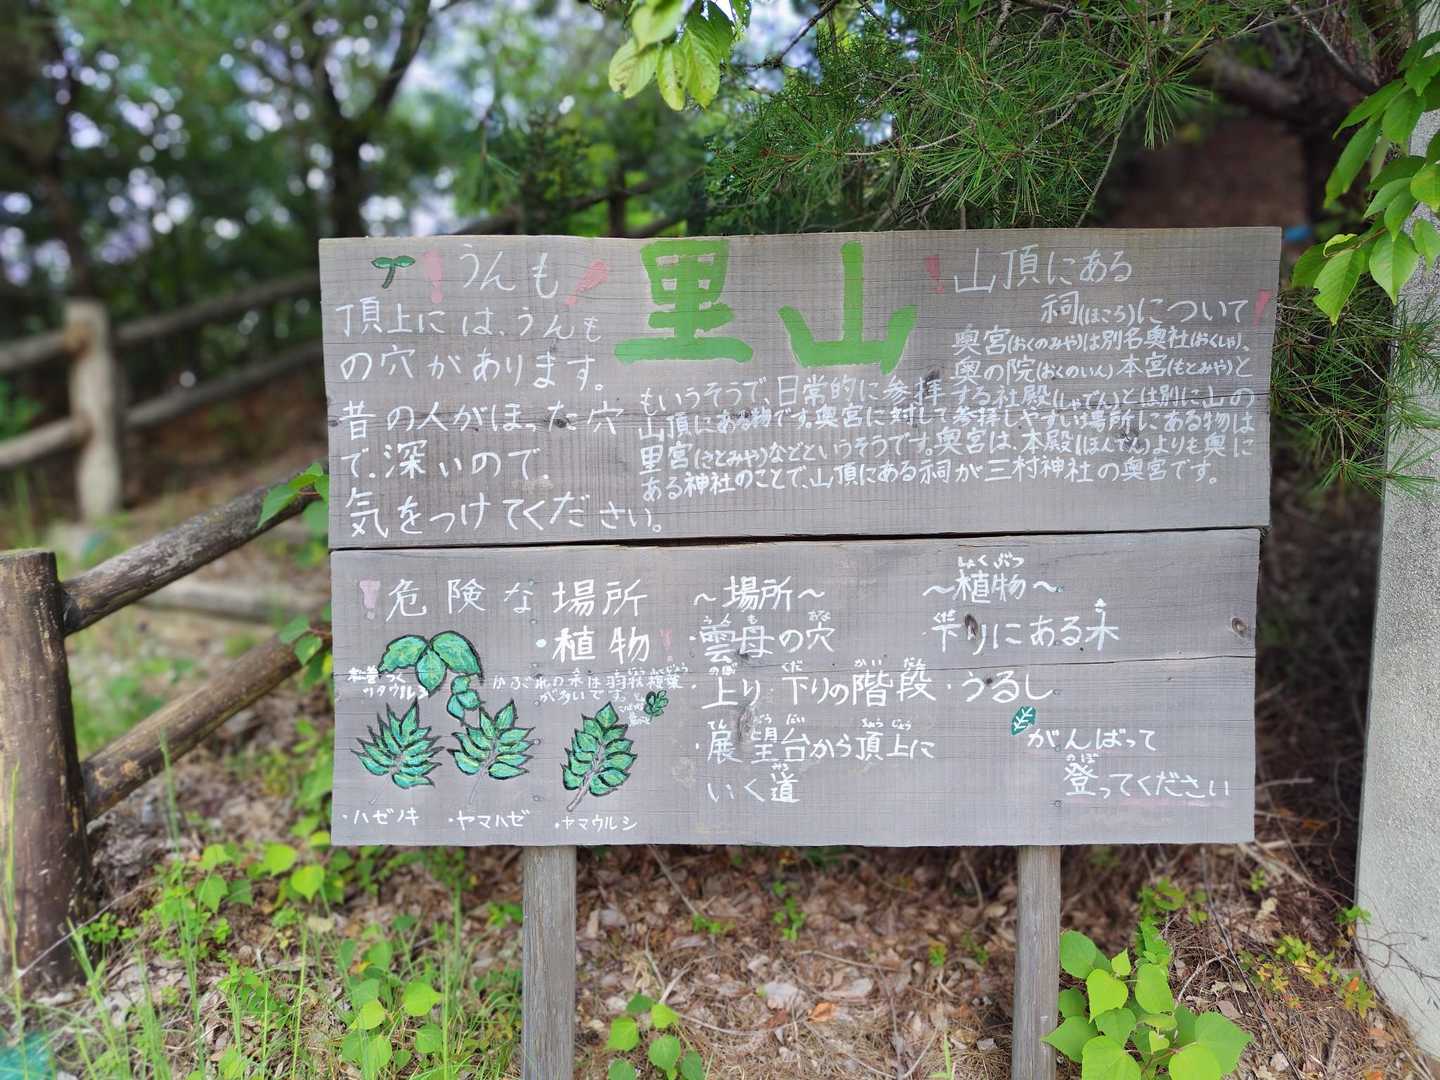 里山
！うんも！
頂上には、うんも
の穴があります。
昔の人がほった穴
で、深いので、
気をつけてください。
！山頂にある
祠(ほこら)について！
奥宮(おくのみや)は別名奥社(おくしゃ)、
奥の院(おくのいん)本宮(もとみや)と
もいうそうで、日常的に参拝する社殿(しゃでん)とは別に山の
山頂にある物です。奥宮に対して参拝しやすい場所にある物は
里宮(さとみや)などというそうです。奥宮は、本殿(ほんでん)よりも奥に
ある神社のことで、山頂にある祠が三村神社の奥宮です。
！危険な場所
・植物！
ツタウルシ
かぶれの木は羽状複葉
が多いです。
・ハゼノキ
・ヤマハゼ
・ヤマウルシ
～場所～
・雲母の穴
・上り下りの階段
・展望台から頂上に
いく道
～植物～
・下りにある木
・うるし
がんばって
登ってください